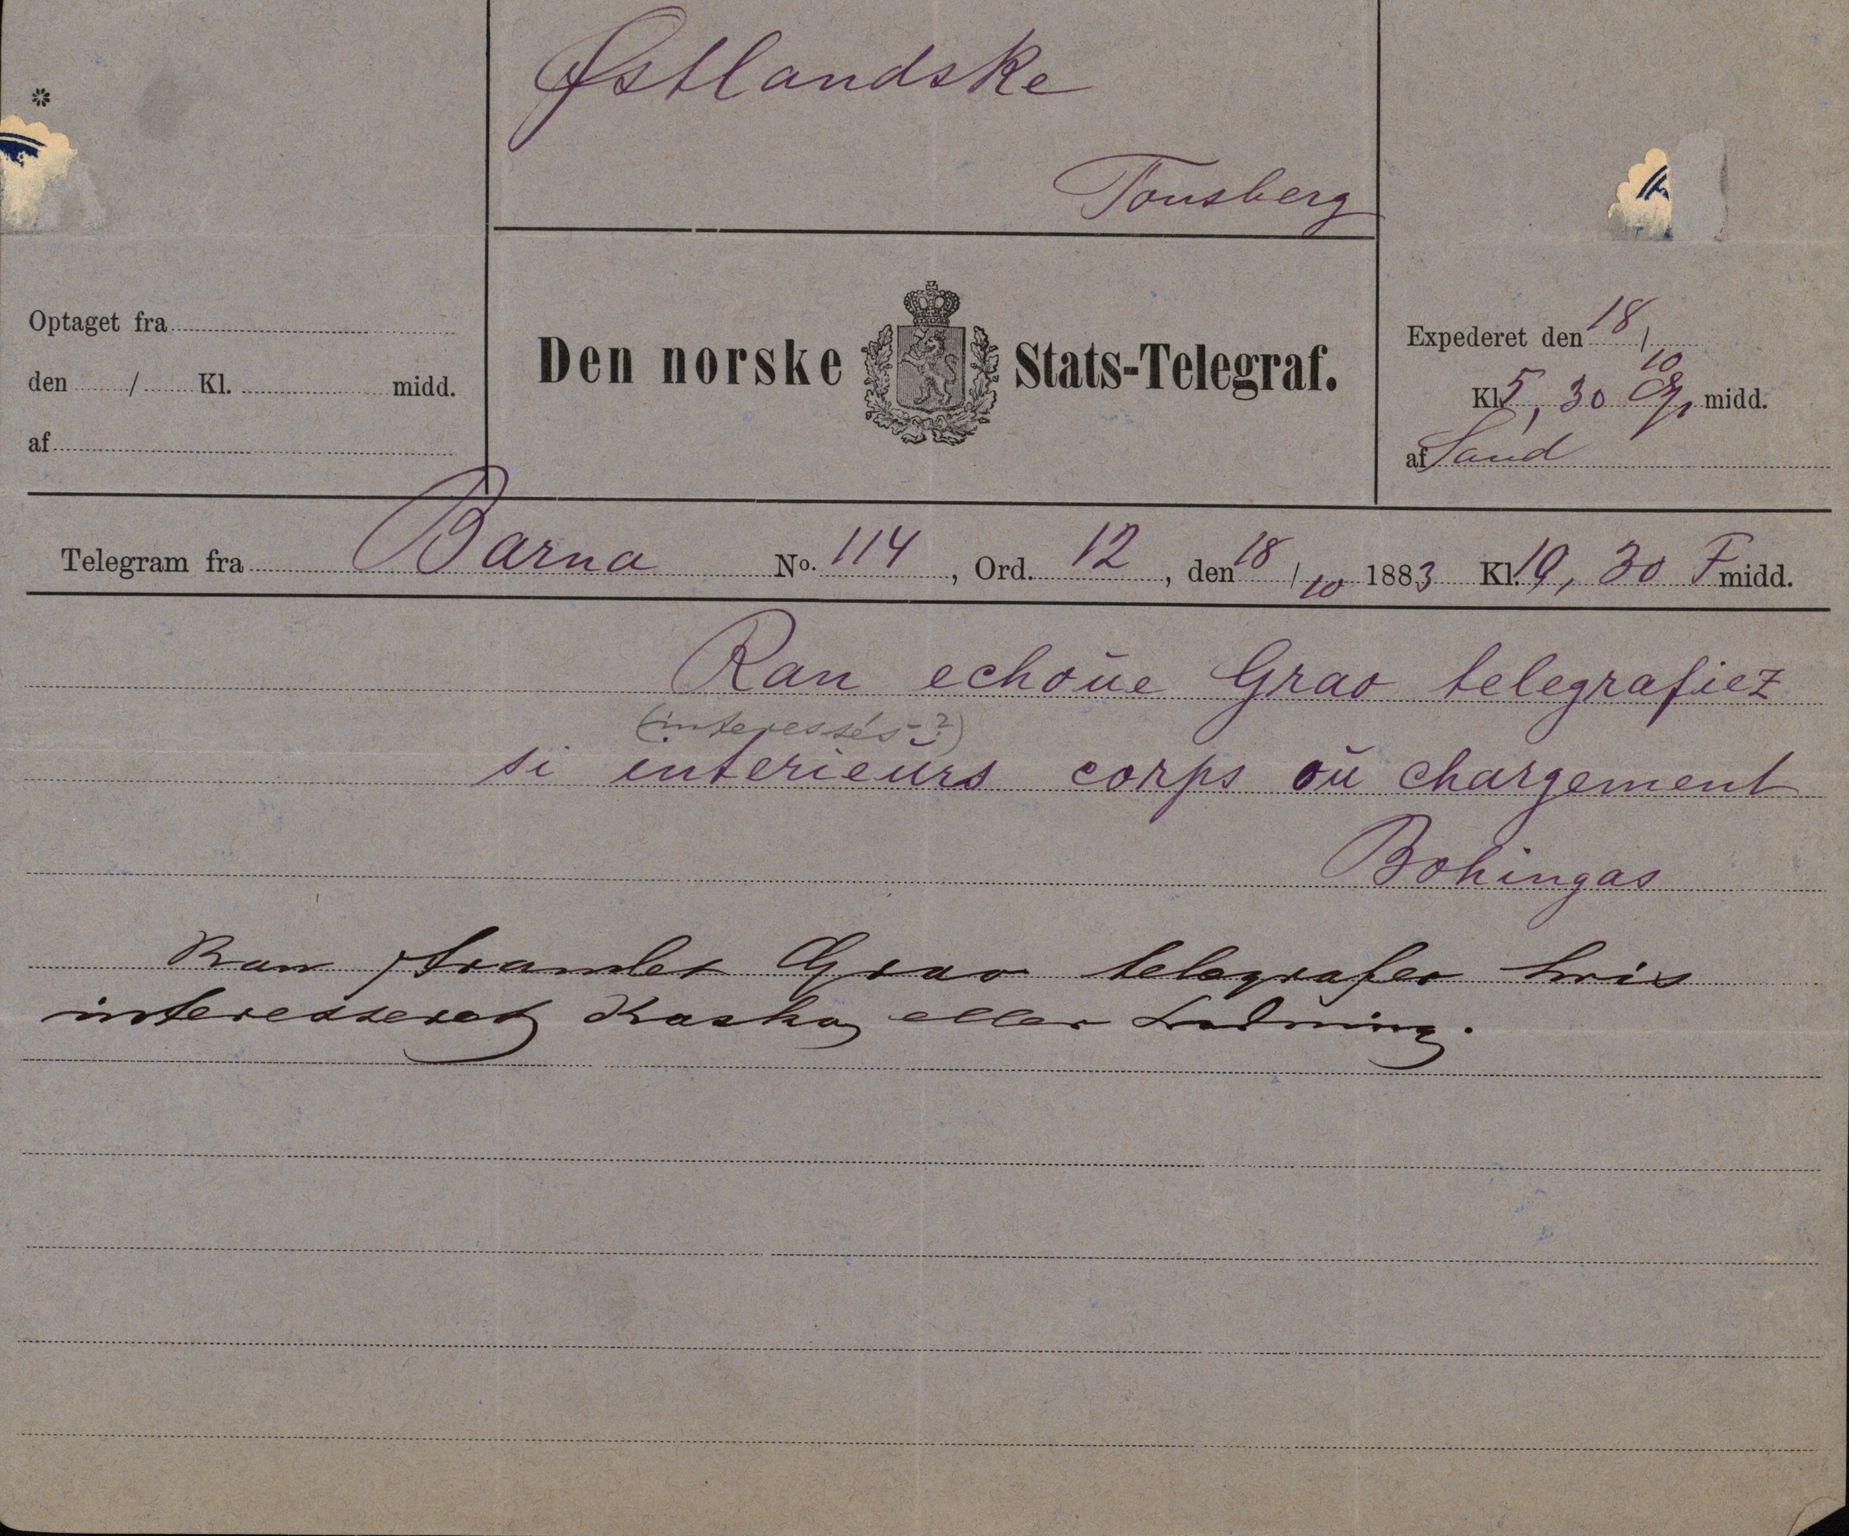 *
Østlandske
Tonsberg
Optaget fra
den / Kl. midd.
af
Den norske Stats-Telegraf.
Expederet den 18/10
Kl. 5,30 Ef midd.
af Sand
Telegram fra Barna No. 114, Ord. 12, den 18/10 1883 Kl. 10,30 F midd.
Ran echoŭe Grao telegrafiez
(interessés-?)
si interieŭrs corps oŭ chargement
Bohingas
Ran strandet Grao telegrafer hvis
interesseret Kasko eller Ladning.